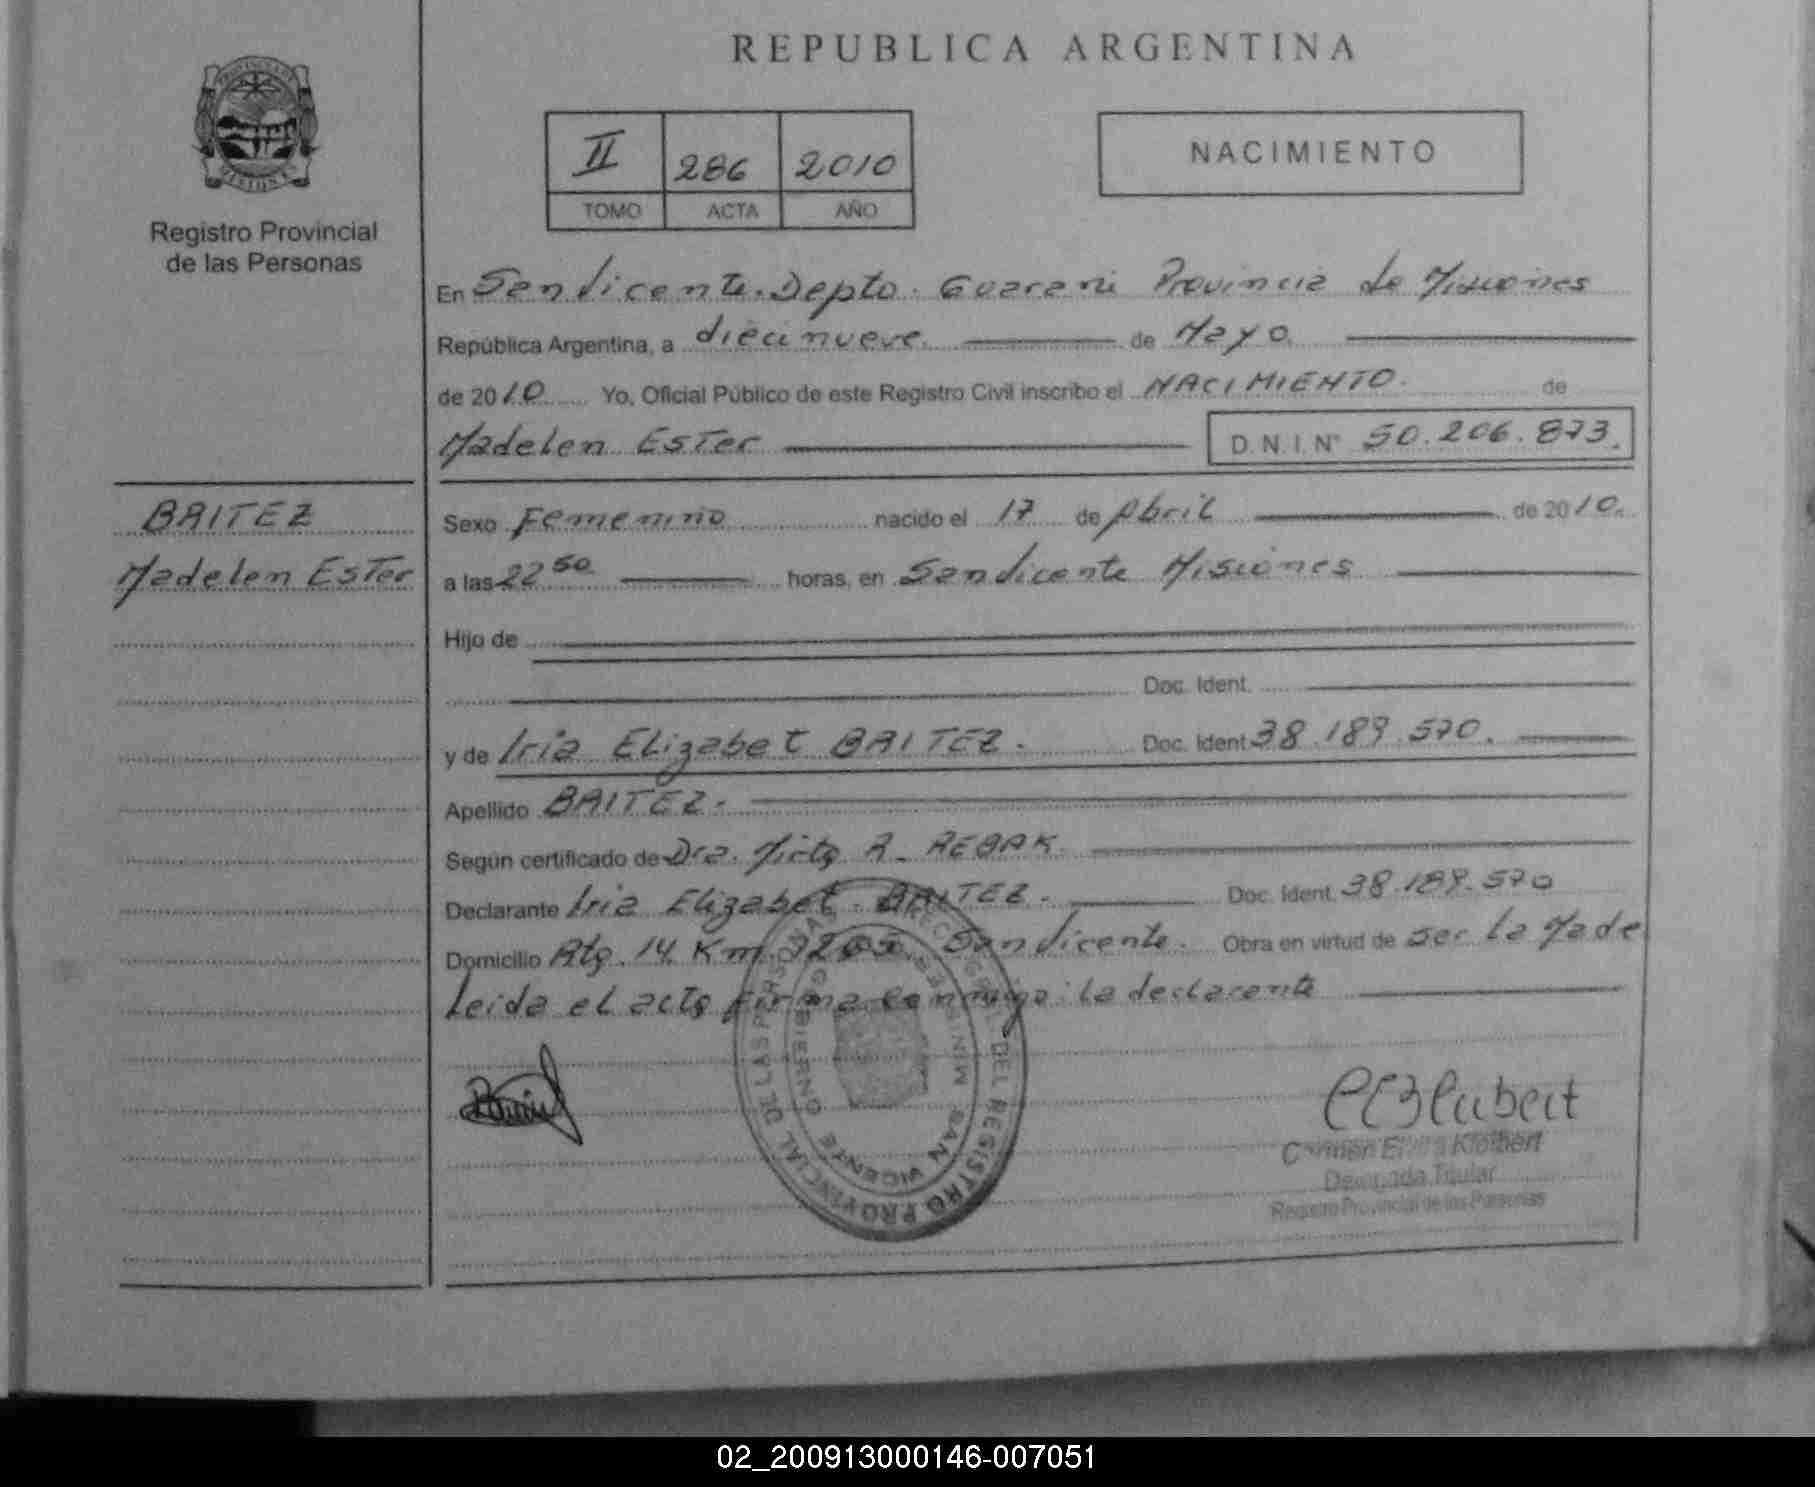 REPUBLICA ARGENTINA
PROVINCIA DE
MISIONES
Registro Provincial
de las Personas
II 286 2010
TOMO ACTA AÑO
NACIMIENTO
En San Vicente. Depto. Guarani Provincia de Misiones
República Argentina, a diecinueve. de Mayo
de 2010 Yo, Oficial Público de este Registro Civil inscribo el NACIMIENTO. de
Madelen Ester D.N.I. Nº 50.206.873.
BAITEZ
Madelen Ester
Sexo Femenino nacido el 17 de Abril de 2010.
a las 22 50 horas, en San Vicente Misiones
Hijo de
Doc. Ident.
y de Iria Elizabet BAITEZ. Doc. Ident. 38.189.570.
Apellido BAITEZ.
Según certificado de Dra. R. REBAK.
Declarante Iria Elizabet. BAITEZ. Doc. Ident. 38.189.570
Domicilio Rta. 14 Km. San Vicente. Obra en virtud de ser la Made
Leida el acta Firma conmigo: la declarante
DEL REGISTRO PROVINCIAL DE LAS PERSONAS
GOBIERNO
SAN VICENTE
Carmen Klaibert
Delegada Titular
Registro Provincial de las Personas
02_200913000146-007051